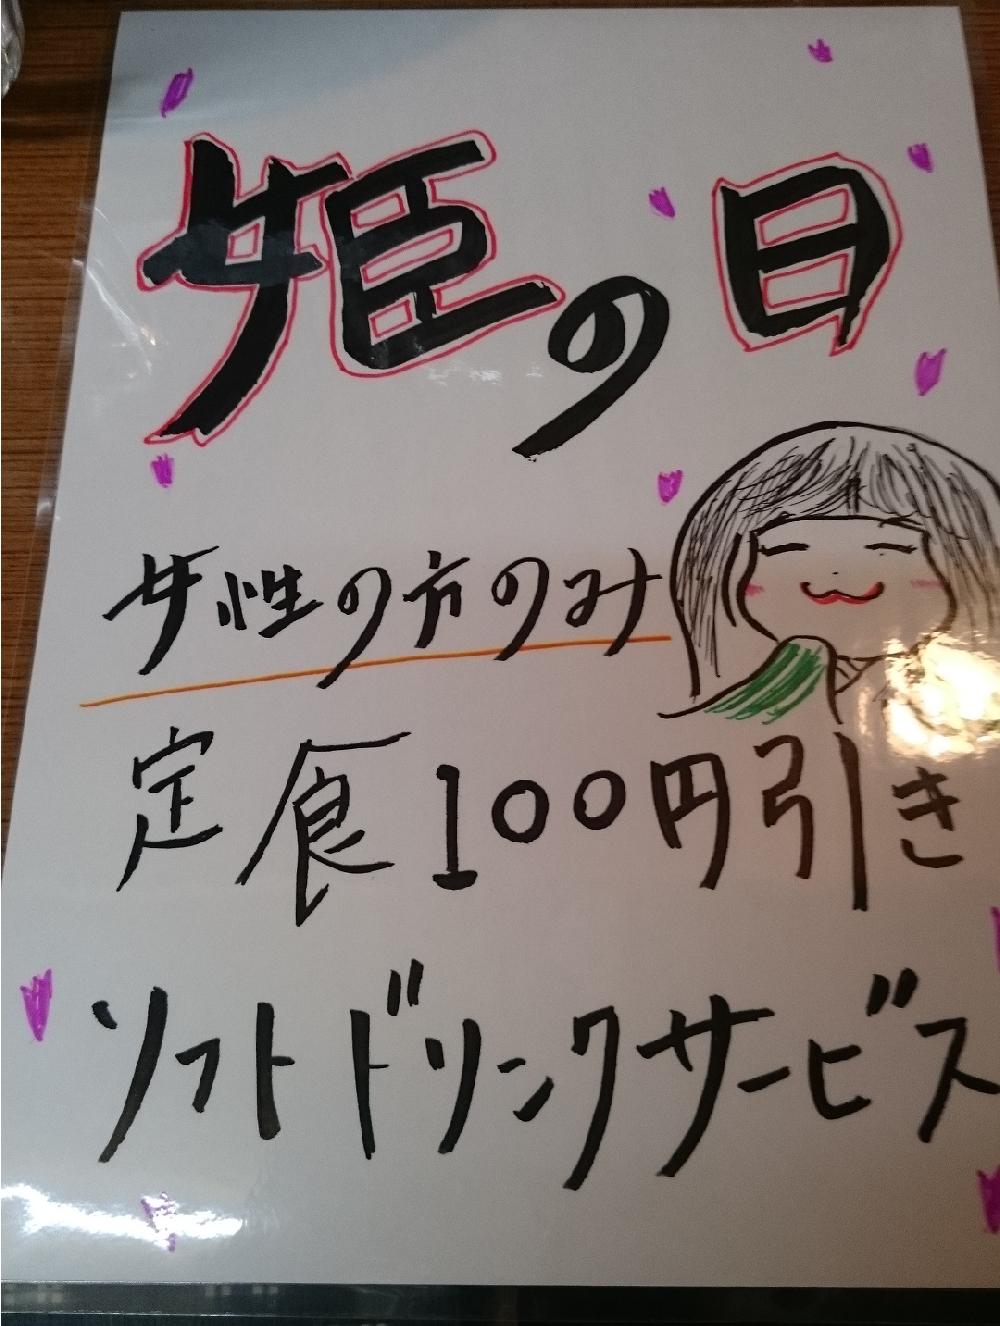 姫の日
女性の方のみ
定食100円引き
ソフトドリンクサービス